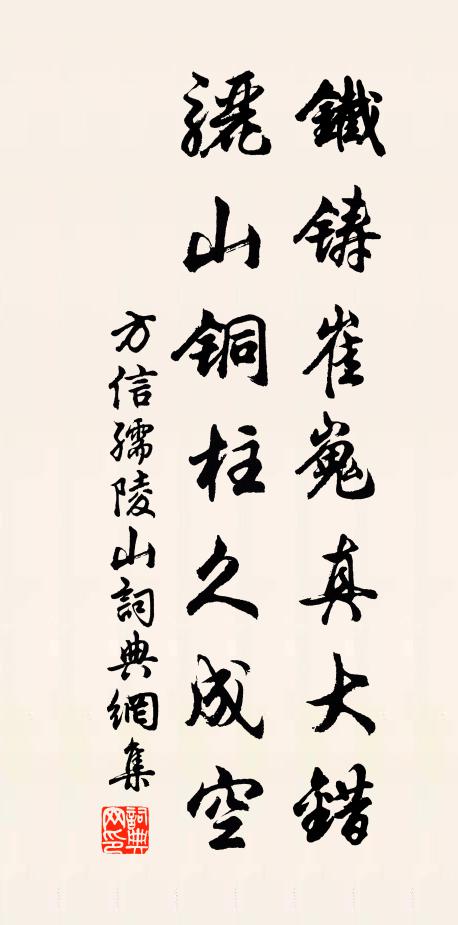 鐵鑄崔嵬真大錯
驪山銅柱久成空
方信孺陵山詞典網集
詞典网印